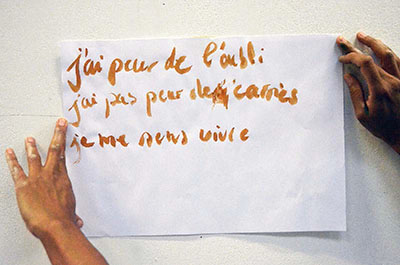 j'ai peur de l'oubli
j'ai pas peur
je me sens vivre